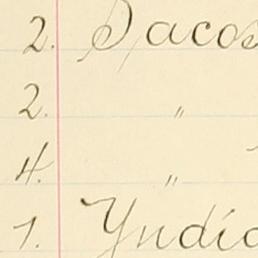 2. Sacos
2. "
4. "
1. Yndia